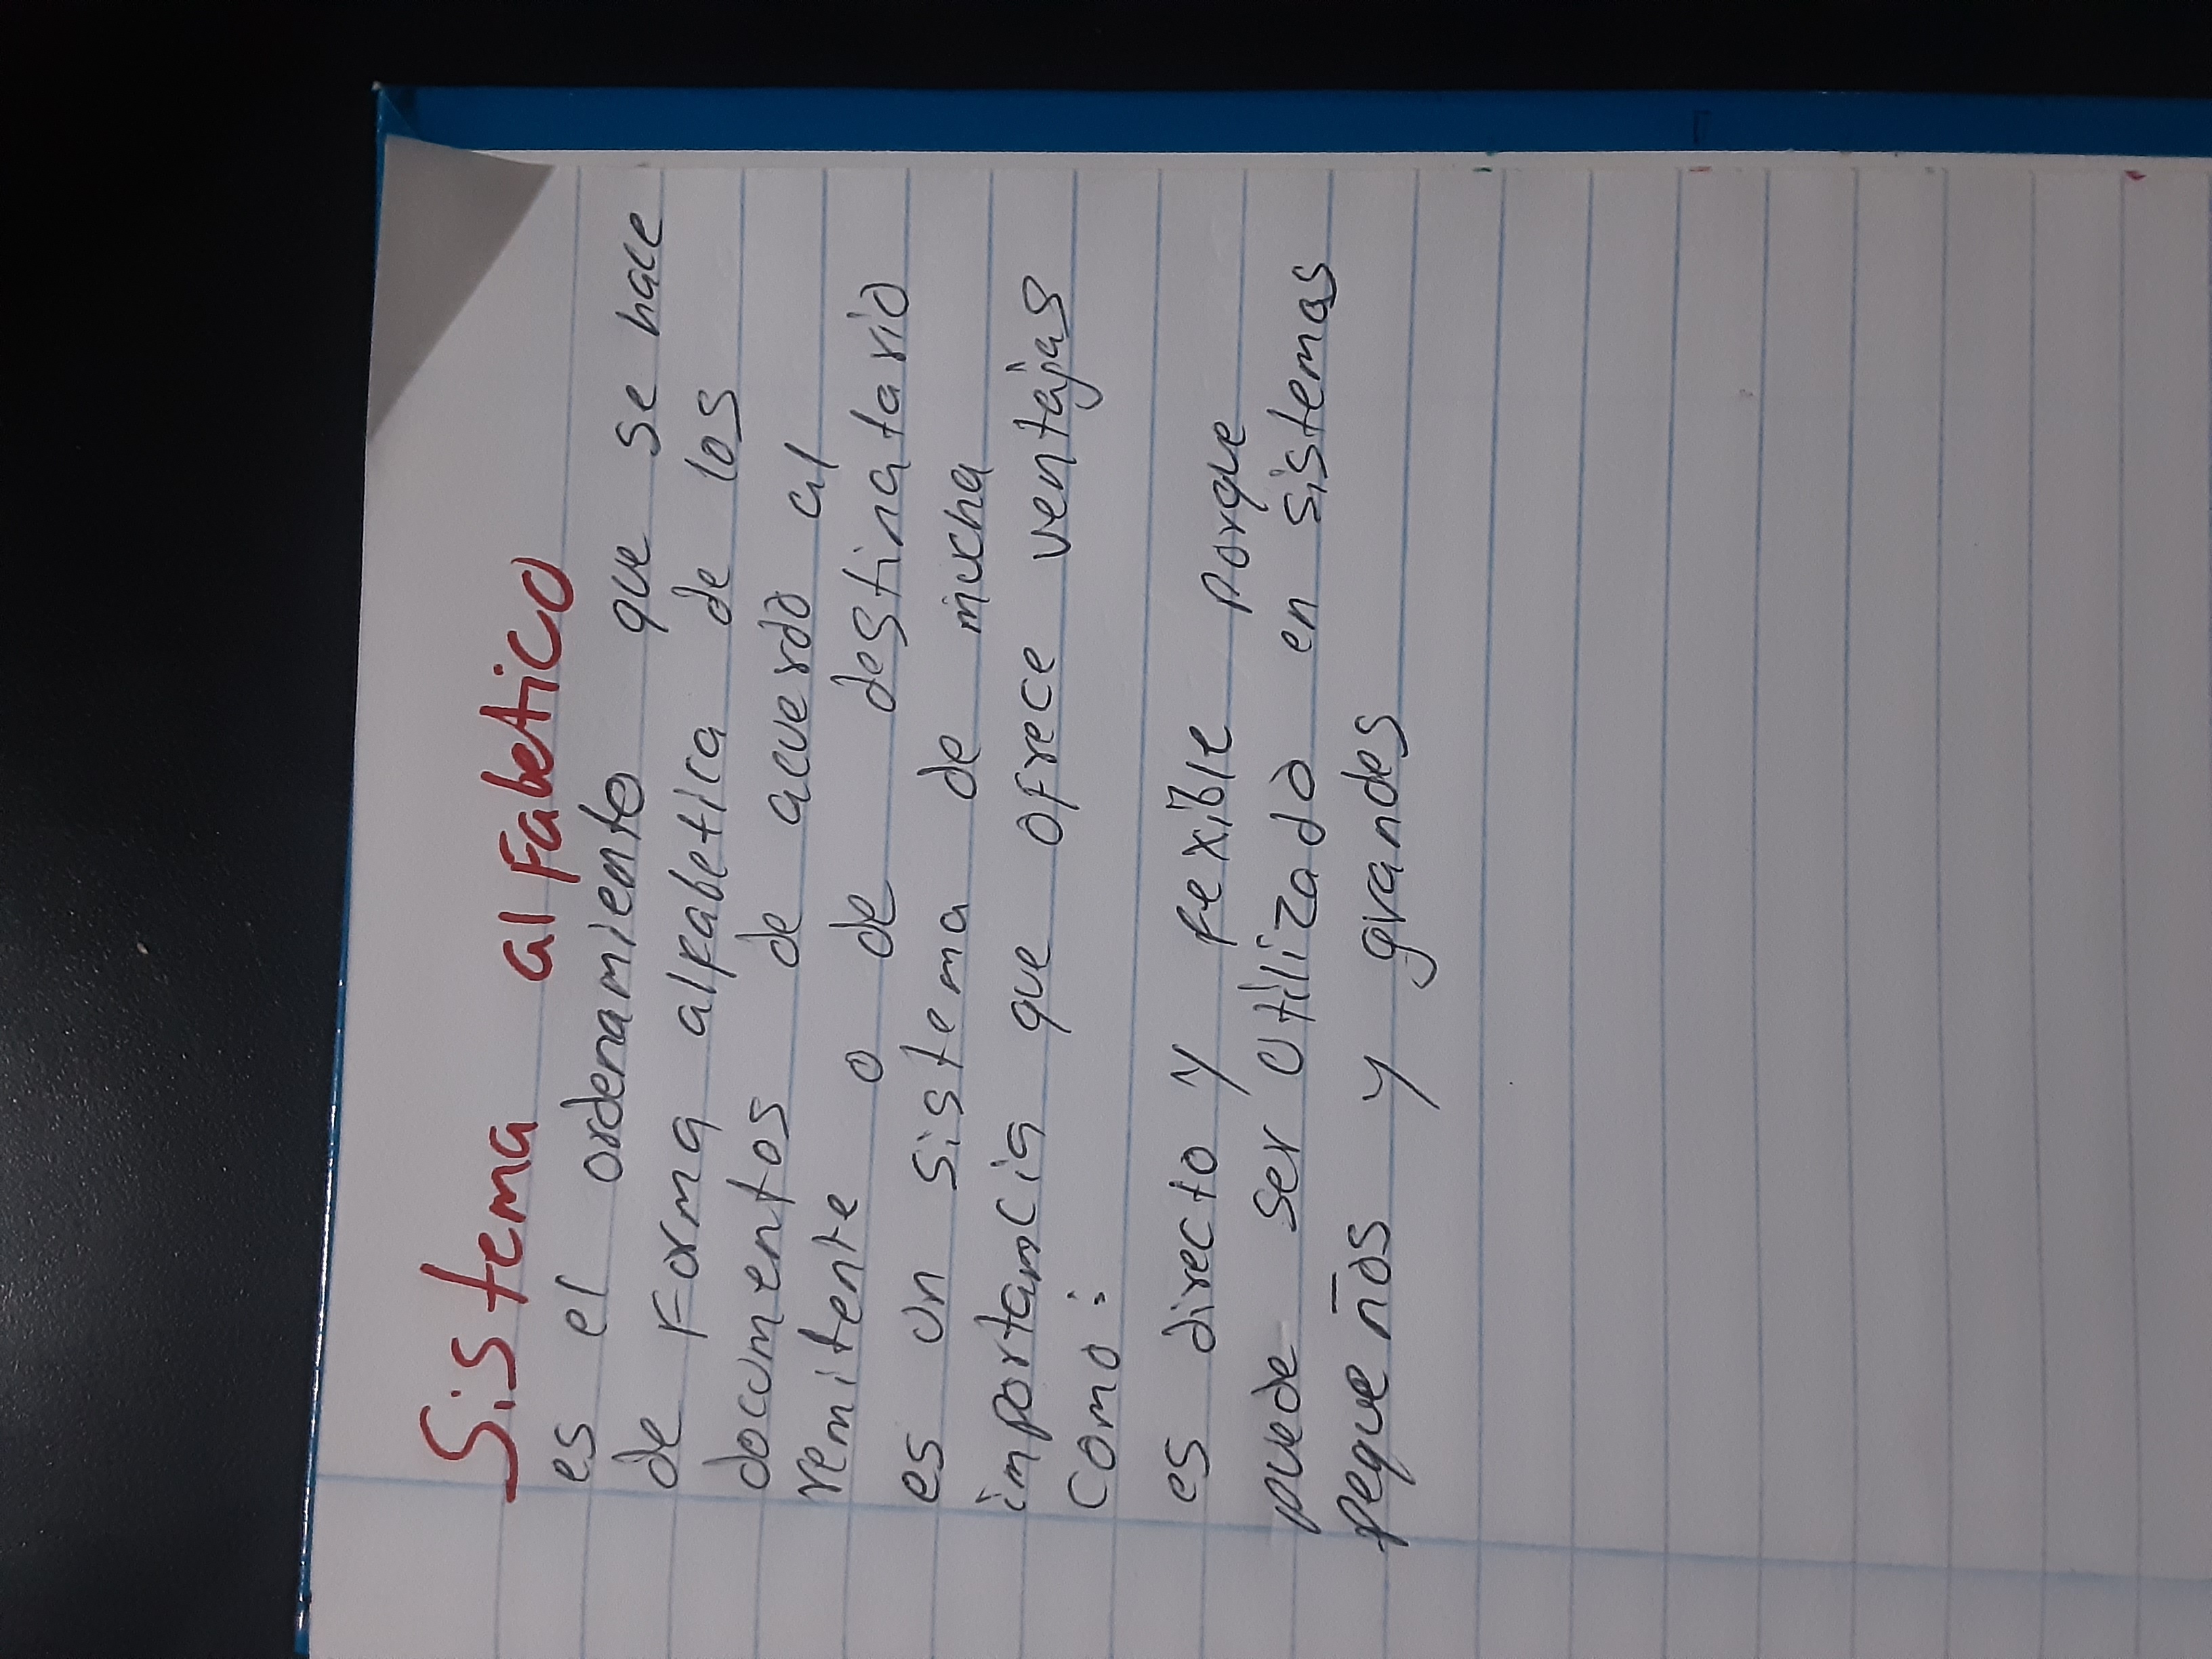 Sistema alfabetico
es el ordenamiento que se hace
de Forma alfabetica de los
documentos de acuerdo al
remitente o de destinatario
es un sistema de mucha
importamcia que ofrece ventajas
como:
es directo y fexible porque
puede ser utilizado en sistemas
pequeños y grandes